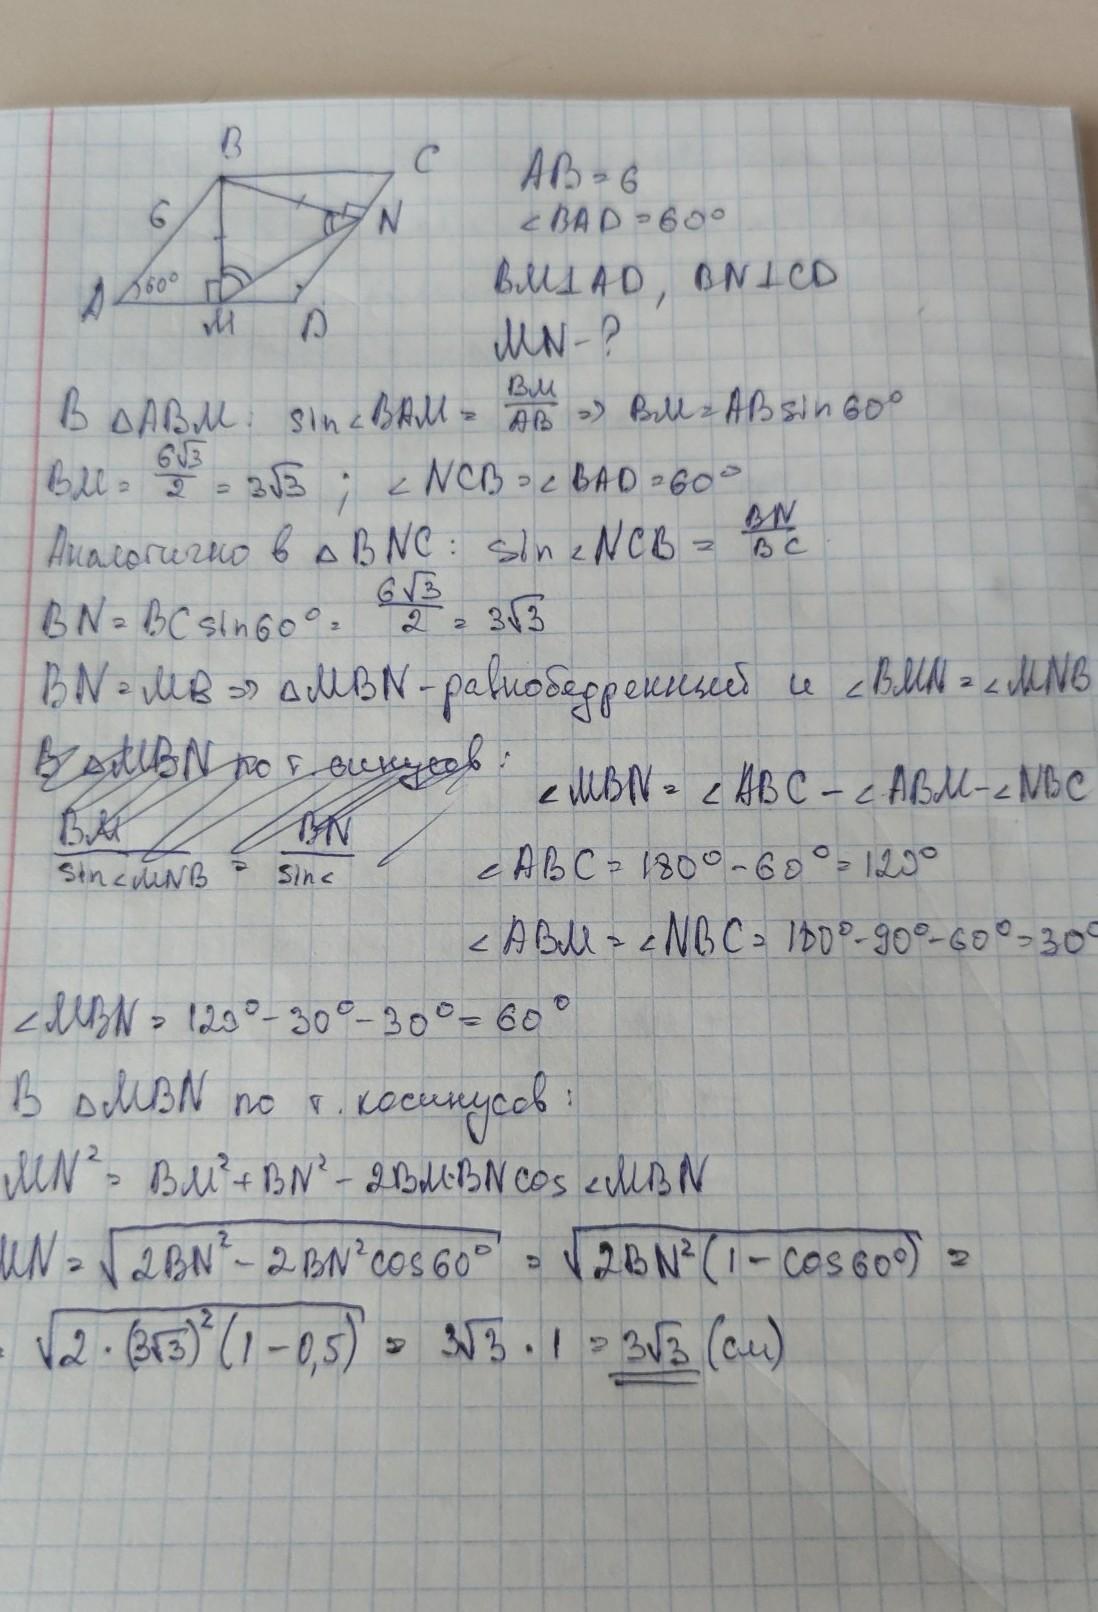 B
C
6
N
A
60°
M
D
AB = 6
∠BAD = 60°
BM⊥AD, BN⊥CD
MN - ?
В △ABM: sin∠BAM = BM/AB => BM = AB sin60°
BM = 6√3/2 = 3√3 ; ∠NCB = ∠BAD = 60°
Аналогично в △BNC: sin∠NCB = BN/BC
BN = BC sin60° = 6√3/2 = 3√3
BN = MB => △MBN - равнобедренный и ∠BMN = ∠MNB
В △MBN по т. синусов:
BM/sin∠MNB = BN/sin∠
∠MBN = ∠ABC - ∠ABM - ∠NBC
∠ABC = 180° - 60° = 120°
∠ABM = ∠NBC = 180° - 90° - 60° = 30°
∠MBN = 120° - 30° - 30° = 60°
В △MBN по т. косинусов:
MN² = BM² + BN² - 2BM·BN cos∠MBN
MN = √(2BN² - 2BN² cos60°) = √(2BN²(1 - cos60°)) =
= √(2·(3√3)²(1 - 0,5)) = 3√3 · 1 = 3√3 (см)